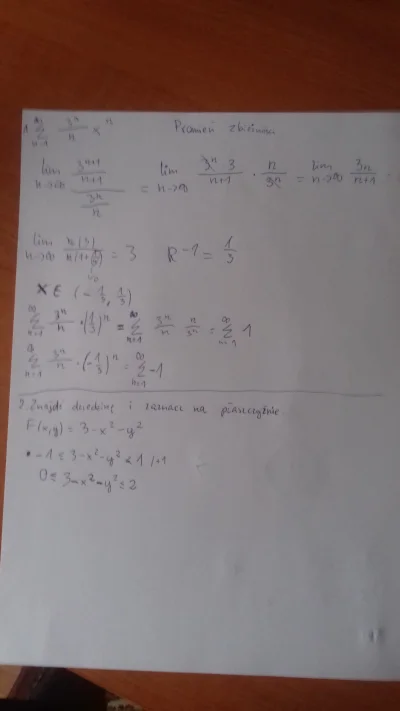 1 ∞ Σ n=1 3^n/n x^n Promień zbieżności
lim n→∞ (3^(n+1)/(n+1))/(3^n/n) = lim n→∞ 3^n·3/(n+1) · n/3^n = lim n→∞ 3n/(n+1)
lim n→∞ n(3)/n(1+1/n) = 3 R^-1 = 1/3
x ∈ (-1/3, 1/3)
∞ Σ n=1 3^n/n · (1/3)^n = ∞ Σ n=1 3^n/n n/3^n = ∞ Σ n=1 1
∞ Σ n=1 3^n/n · (-1/3)^n = ∞ Σ n=1 -1
2. Znajdź dziedzinę i zaznacz na płaszczyźnie
F(x,y) = 3-x²-y²
• -1 ≤ 3-x²-y² ≤ 1 /+1
0 ≤ 3-x²-y² ≤ 2